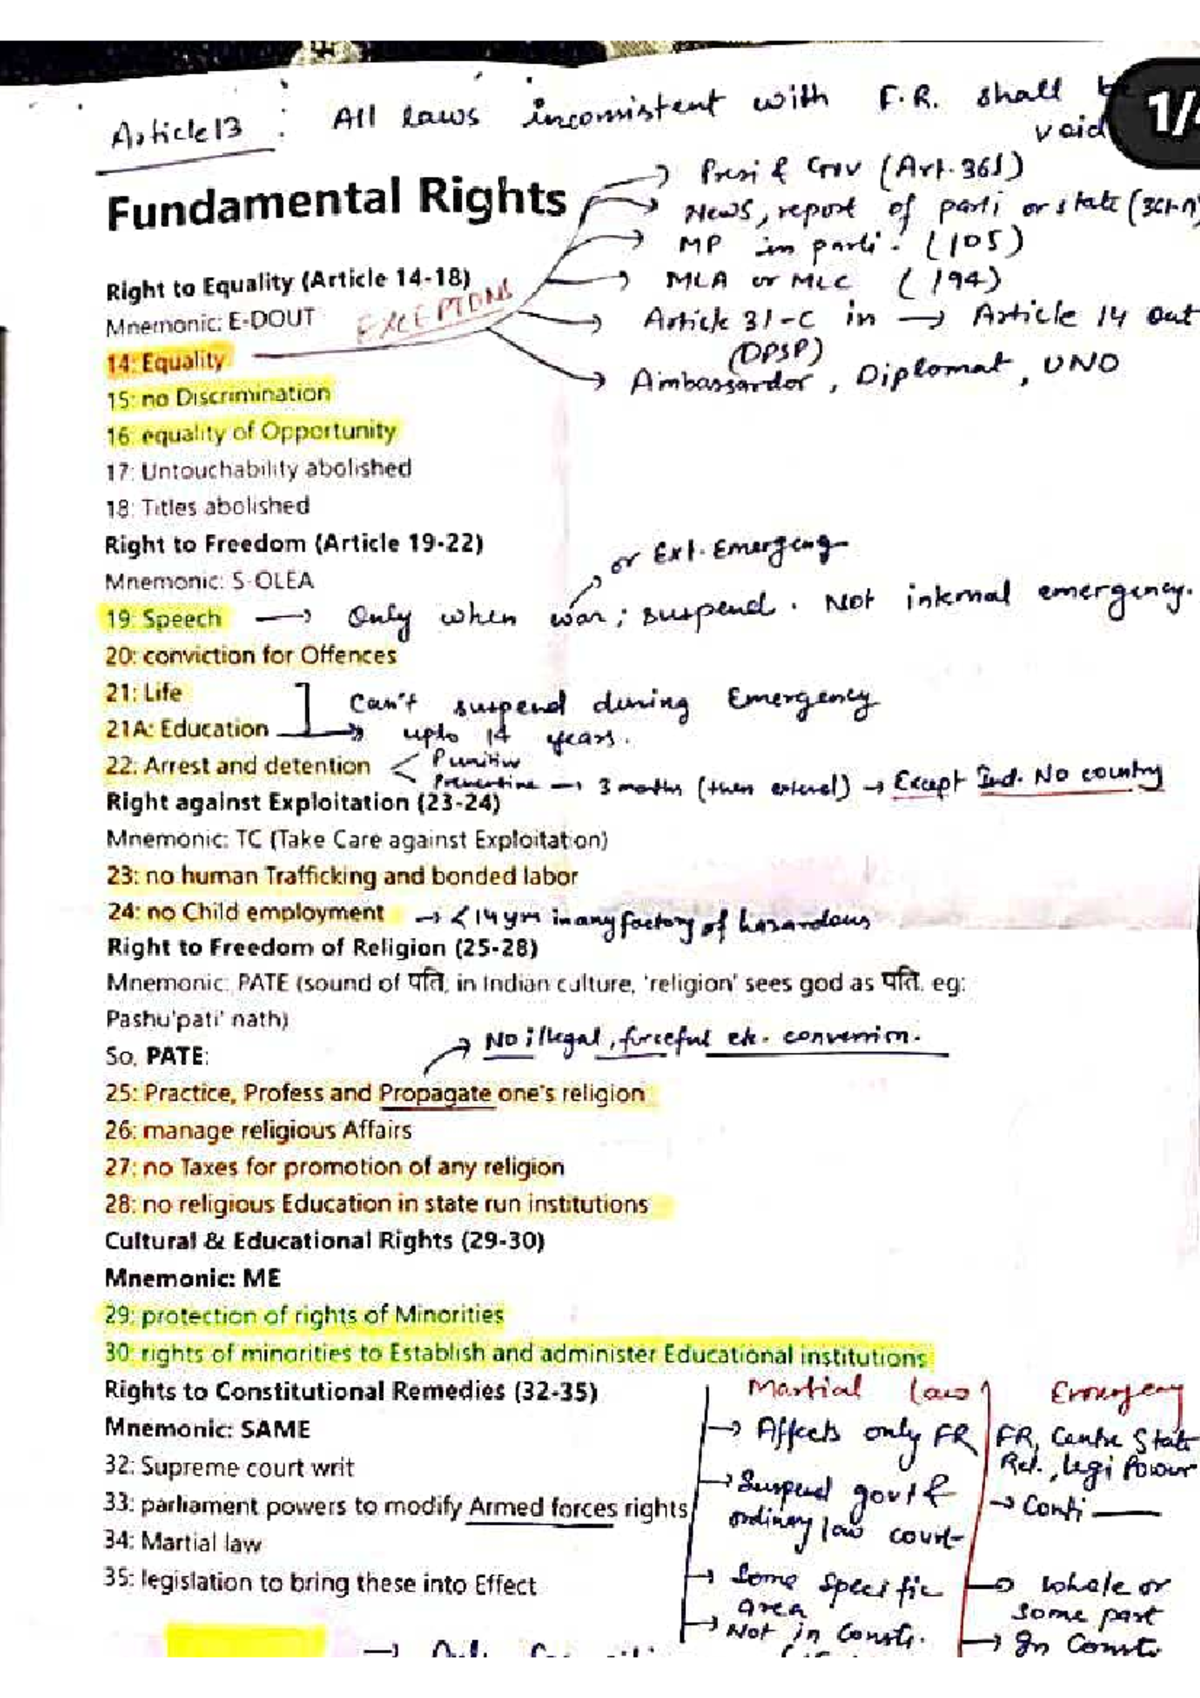 Article 13 : All laws inconsistent with F.R. shall be void
1/4
Fundamental Rights
→ Presi & Gov (Art. 361)
→ News, report of parli or state (361-A)
→ MP in parli. (105)
→ MLA or MLC (194)
→ Article 31-C in → Article 14 out
(DPSP)
→ Ambassardor, Diplomat, UNO
EXCEPTIONS
Right to Equality (Article 14-18)
Mnemonic: E-DOUT
14: Equality
15: no Discrimination
16: equality of Opportunity
17: Untouchability abolished
18: Titles abolished
Right to Freedom (Article 19-22)
Mnemonic: S-OLEA
or Ext. Emergency
19: Speech → Only when war; suspend. Not internal emergency.
20: conviction for Offences
21: Life
Can't suspend during Emergency
21A: Education → upto 14 years.
22: Arrest and detention < Punitive
Preventive → 3 months (then extend) → Except Ind. No country
Right against Exploitation (23-24)
Mnemonic: TC (Take Care against Exploitation)
23: no human Trafficking and bonded labor
24: no Child employment → < 14 yrs in any factory of hazardous
Right to Freedom of Religion (25-28)
Mnemonic: PATE (sound of पति, in Indian culture, 'religion' sees god as पति, eg:
Pashu'pati' nath)
So, PATE:
→ No illegal, forceful etc. conversion.
25: Practice, Profess and Propagate one's religion
26: manage religious Affairs
27: no Taxes for promotion of any religion
28: no religious Education in state run institutions
Cultural & Educational Rights (29-30)
Mnemonic: ME
29: protection of rights of Minorities
30: rights of minorities to Establish and administer Educational institutions
Rights to Constitutional Remedies (32-35)
Mnemonic: SAME
32: Supreme court writ
33: parliament powers to modify Armed forces rights
34: Martial law
35: legislation to bring these into Effect
Martial law
→ Affects only FR
→ Suspend govt &
ordinary law court
→ Some specific
area
→ Not in Consti.
Emergency
FR, Centre State
Rel., legi Power
→ Conti
→ Whole or
some part
→ In Consti